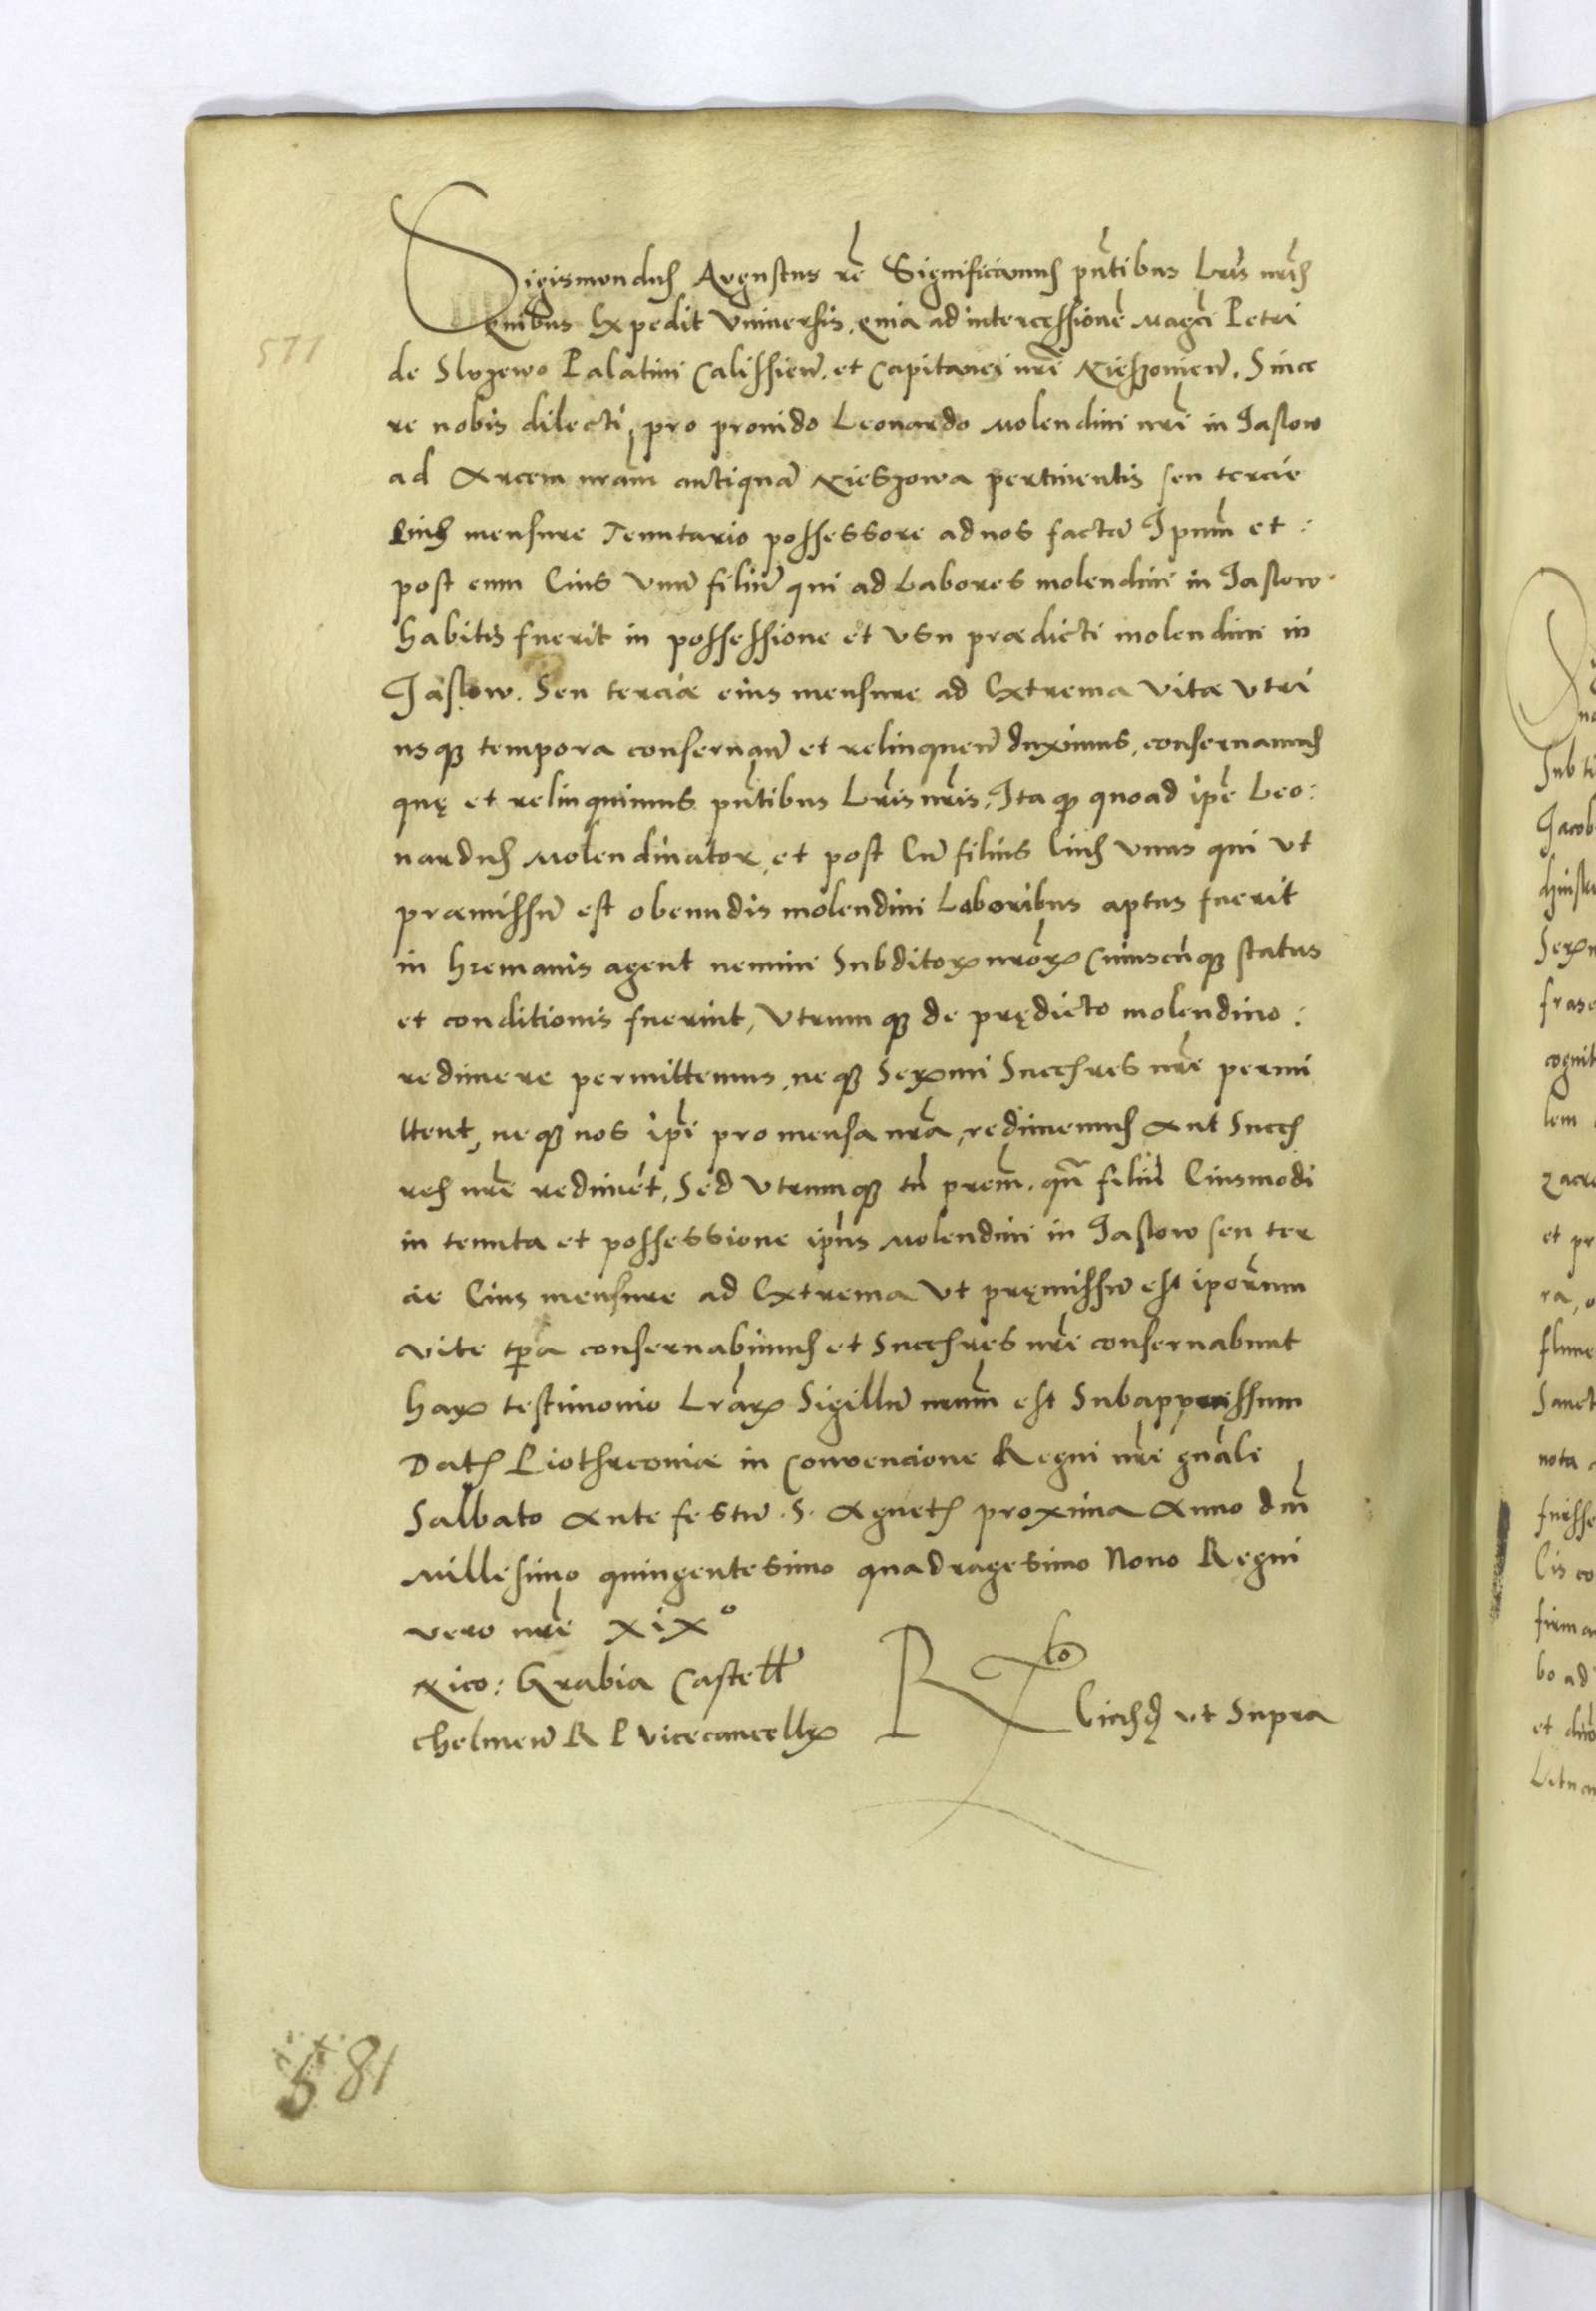 Sigismondus Avgustus rē Significamus pn̄tibus Lris nrīs
quibus Expedit Vniuersis, quia ad intercessionē Magcī Petri
577
de Slvzewo Palatini Calissien̄. et Capitanei nrī Nieszouien̄. Since
re nobis dilecti, pro prouido Leonardo Molendini nrī in Jastow
ad Arcem nram̄ antiquā Nieszowa pertinentis seu tercie
Eius mensure Tenutario possessore ad nos factā Ipnum̄ et:
post eum Eius Vnū filiū qui ad Labores molendini in Jastow
habilis fuerit in possessione et vsu prædicti molendini in
Jastow. Seu terciæ eius mensure ad Extrema vitæ vtri
usq̨ tempora conseruan̄ et relinquen̄ duximus, conseruamus
quę et relinquimus pn̄tibus Lrīs nrīs, Ita q̨ quoad ipē Leo:
nardus Molendinator, et post Eū filius Eius vnus qui vt
præmissū est obeundis molendini Laboribus aptus fuerit
in hremanis agent nemini Subditorꝝ nrōrꝝ Cuiuscūq̨ status
et conditionis fuerint, Vtrumq̨ de prędicto molendino:
redimere permittemus, neq̨ Serꝝmi Succʃres nrī permi
ttent, neq̨ nos ipī pro mensa nrā, redimemus Aut Succʃ
res nrī rediment, Sed Vtrumq̨ tn̄ prem̄. qn̄ filiū Eiusmodi
in tenuta et possessione ipn̄s Molendini in Jastow seu ter
cie Eius mensure ad Extrema Vt pręmissū est ipōrum
vite tp̄a conseruabimus et Succʃres nrī conseruabunt
harꝝ testimonio Lrārꝝ Sigillū nrum̄ est Subappressum
Datʃ Piotrcouiæ in Convencione Regni nrī gn̄ali
Sabbato Ante festū. S. Agnetʃ proxima Anno dn̄i
Millesimo quingentesimo quadragesimo Nono Regni
vero nrī XiX°
Nico: Grabia Castell̄
chelmen̄ R P Vicecancellꝝ
Rlo
Eiusdꝫ vt Supra
581